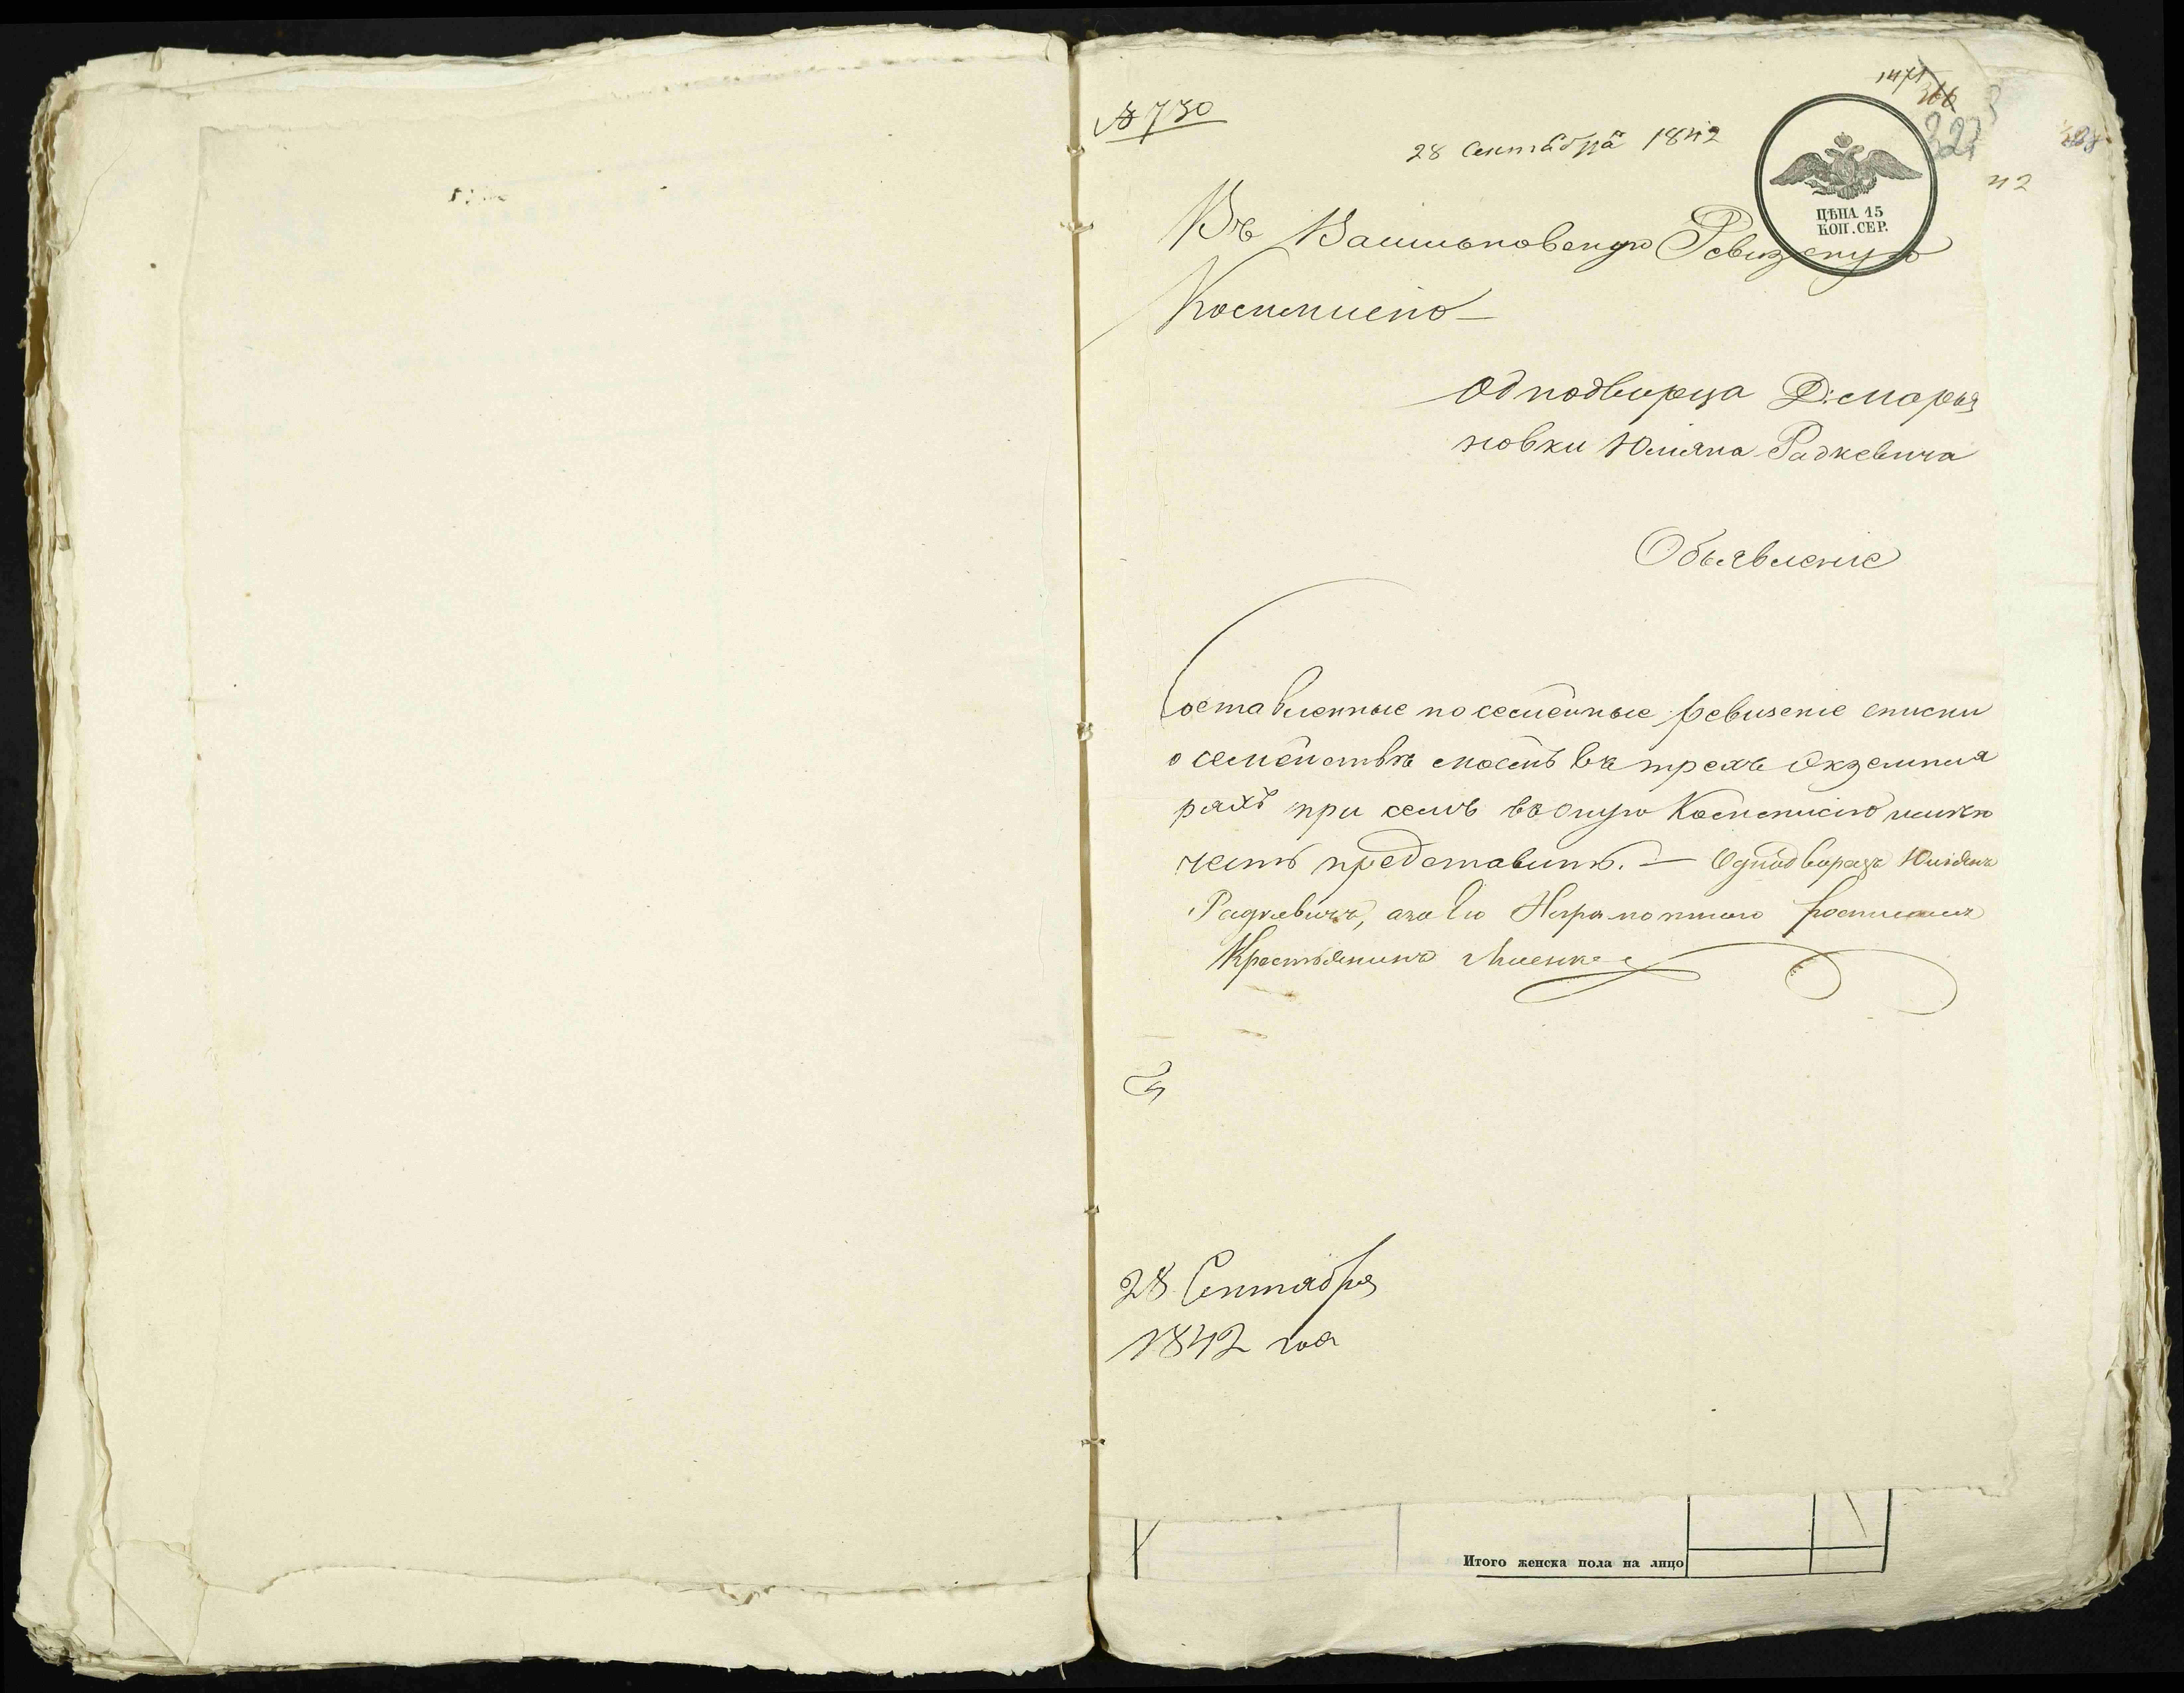 № 730
28 Сентября 1842
1471
366
323
42
ЦѢНА 15
КОП. СЕР.
Въ Васильковскую Ревизскую
Коммисію
Однодворца Д: Марья
новки Юліяна Радкевича
Объявленіе
Составленные посемейные ревизскіе списки
о семействѣ моемъ въ трехъ Экземпля
рахъ при семъ въ оную Коммисію имѣю
честь представить. — Однодворецъ Юліянъ
Радкевичъ, а за Его Неграмотного росписался
Крестьянинъ
28 Сентября
1842 года
Итого женска пола на лицо